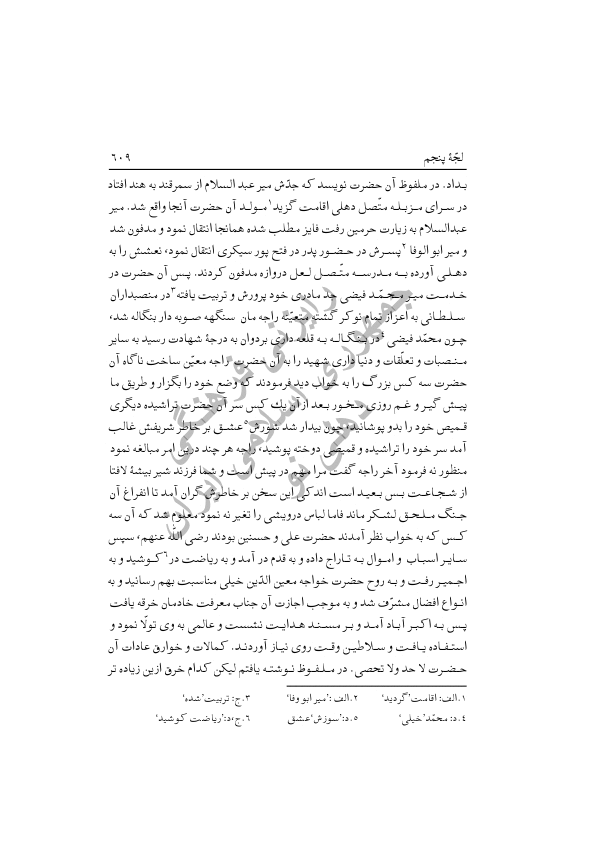 لجّۀ پنجم ۶۰۹
بداد. در ملفوظ آن حضرت نویسد که جدّش میر عبد السلام از سمرقند به هند افتاد
در سرای مزبله متّصل دهلی اقامت گزید۱ مولد آن حضرت آنجا واقع شد. میر
عبدالسلام به زیارت حرمین رفت فایز مطلب شده همانجا انتقال نمود و مدفون شد
و میر ابو الوفا۲ پسرش در حضور پدر در فتح پور سیکری انتقال نمود، نعشش را به
دهلی آورده به مدرسه متّصل لعل دروازه مدفون کردند. پس آن حضرت در
خدمت میر محمّد فیضی جد مادری خود پرورش و تربیت یافته۳ در منصبداران
سلطانی به اعزاز تمام نوکر گشته متعیّنه راجه مان سنگهه صوبه دار بنگاله شد،
چون محمّد فیضی۴ در بنگاله به قلعه داری بردوان به درجۀ شهادت رسید به سایر
منصبات و تعلّقات و دنیا داری شهید را به آن حضرت راجه معیّن ساخت ناگاه آن
حضرت سه کس بزرگ را به خواب دید فرمودند که وضع خود را بگزار و طریق ما
پیش گیر و غم روزی مخور بعد ازآن یك کس سر آن حضرت تراشیده دیگری
قمیص خود را بدو پوشانید، چون بیدار شد شورش۵ عشق بر خاطر شریفش غالب
آمد سر خود را تراشیده و قمیصی دوخته پوشید، راجه هر چند درین امر مبالغه نمود
منظور نه فرمود آخر راجه گفت مرا مهم در پیش است و شما فرزند شیر بیشۀ لافتا
از شجاعت بس بعید است اندکی این سخن بر خاطرش گران آمد تا انفراغ آن
جنگ ملحق لشکر ماند فاما لباس درویشی را تغیر نه نمود معلوم شد که آن سه
کس که به خواب نظر آمدند حضرت علی و حسنین بودند رضی الله عنهم، سپس
سایر اسباب و اموال به تاراج داده و به قدم در آمد و به ریاضت در۶ کوشید و به
اجمیر رفت و به روح حضرت خواجه معین الدّین خیلی مناسبت بهم رسانید و به
انواع افضال مشرّف شد و به موجب اجازت آن جناب معرفت خادمان خرقه یافت
پس به اکبر آباد آمد و بر مسند هدایت نشست و عالمی به وی تولّا نمود و
استفاده یافت و سلاطین وقت روی نیاز آوردند. کمالات و خوارق عادات آن
حضرت لا حد ولا تحصی. در ملفوظ نوشته یافتم لیکن کدام خرق ازین زیاده تر
۱.الف: اقامت’گردید‘ ۲.الف: ’میر ابو وفا‘ ۳.ج: تربیت’شده‘
۴.د: محمّد’خیلی‘ ۵.د:’سوزش‘عشق ۶.ج،د:’ریاضت کوشید‘
رایزنی فرهنگی
جمهوری اسلامی ایران
دهلی نو